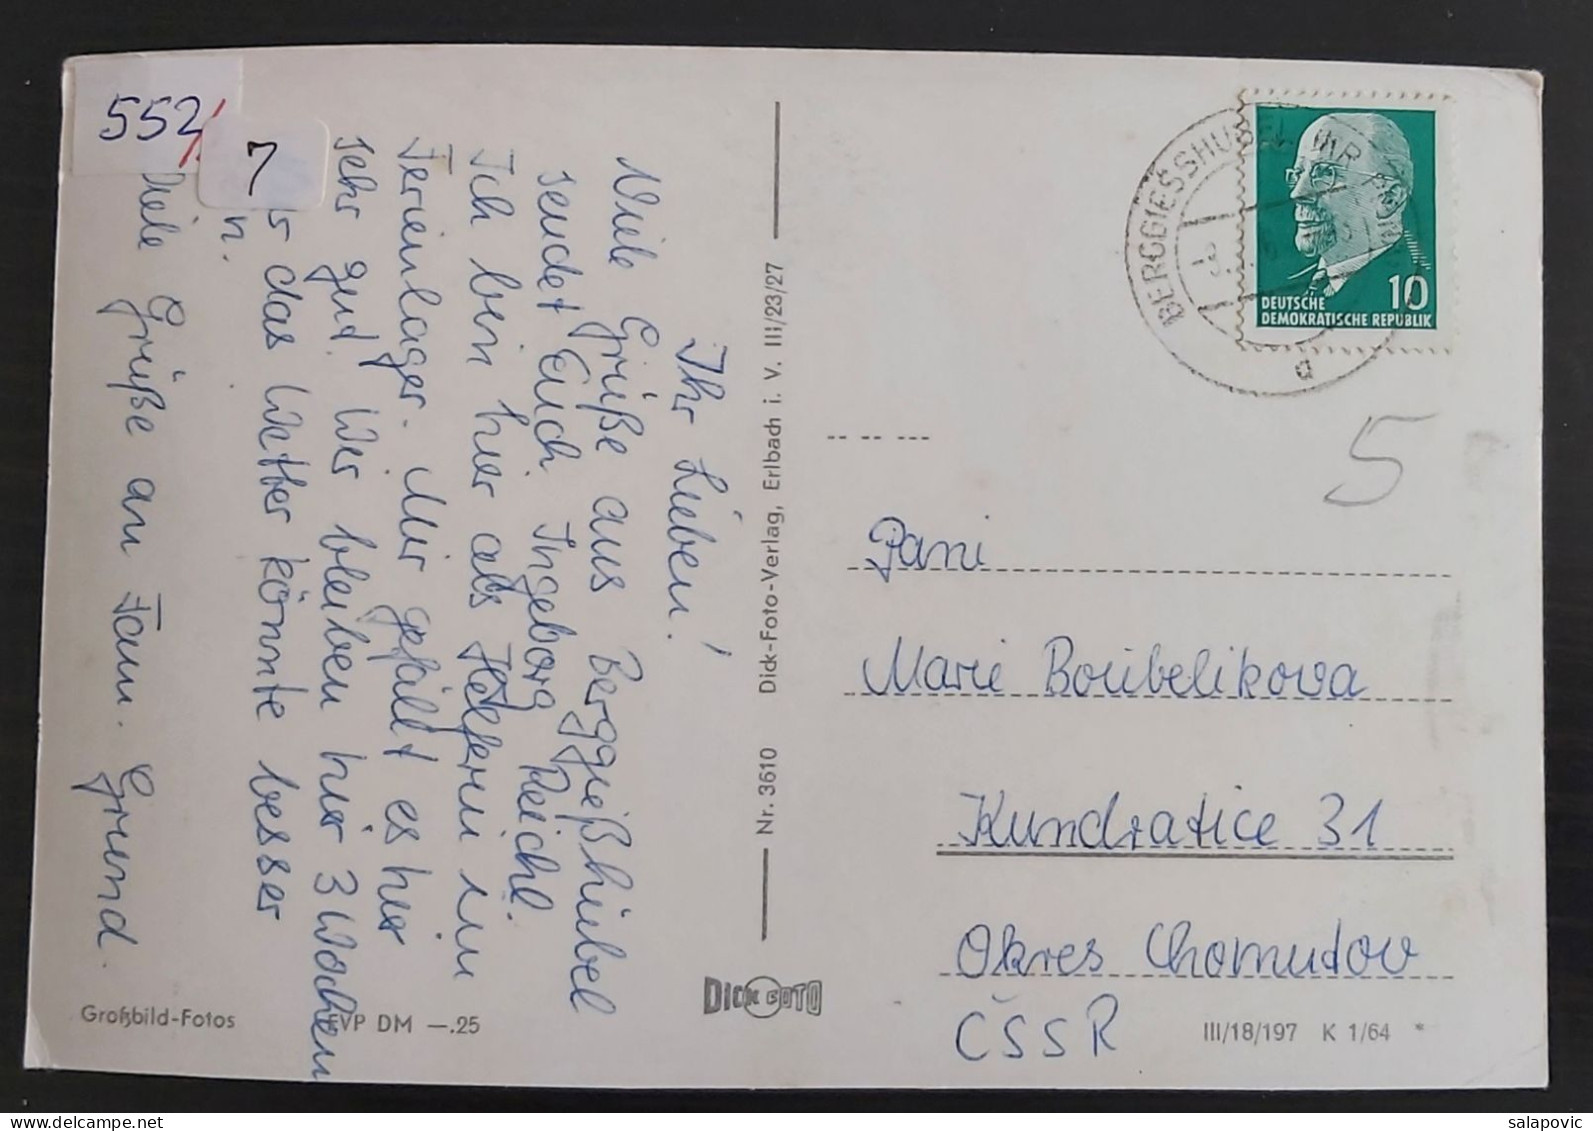 552/.
7
Ihr Lieben!
Viele Grüße aus Berggießhübel
sendet Euch Ingeborg Reichl.
Ich bin hier als Helferin im
Ferienlager. Mir gefällt es hier
sehr gut. Wir bleiben hier 3 Wochen
das Wetter könnte besser
Viele Grüße an Fam. Grund.
Großbild-Fotos
EVP DM —.25
Nr. 3610 Dick-Foto-Verlag, Erlbach i. V. III/23/27
DICK FOTO
BERGGIESSHÜBEL
a
10
DEUTSCHE
DEMOKRATISCHE REPUBLIK
5
Pani
Marie Boubelikova
Kundratice 31
Okres Chomutov
ČSSR
III/18/197 K 1/64 *
salapovic